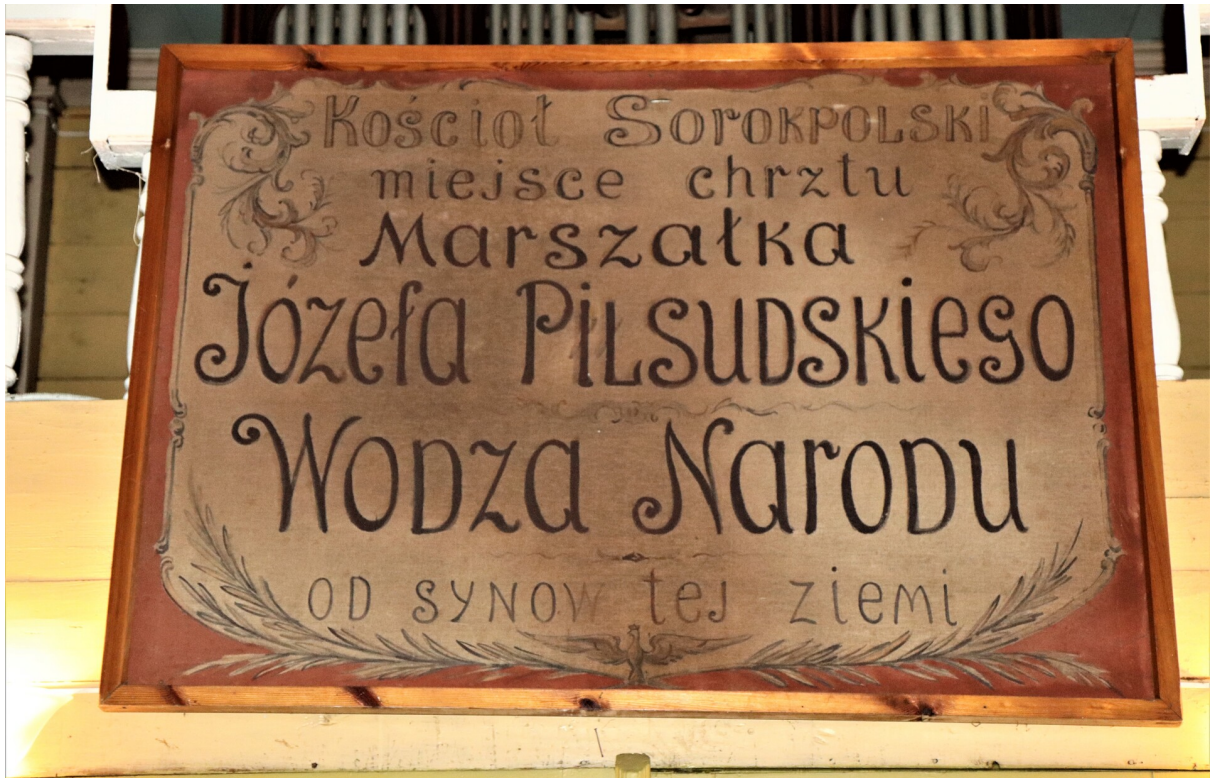 Kościoł Sorokpolski
miejsce chrztu
Marszałka
Józefa Piłsudskiego
Wodza Narodu
od synow tej ziemi